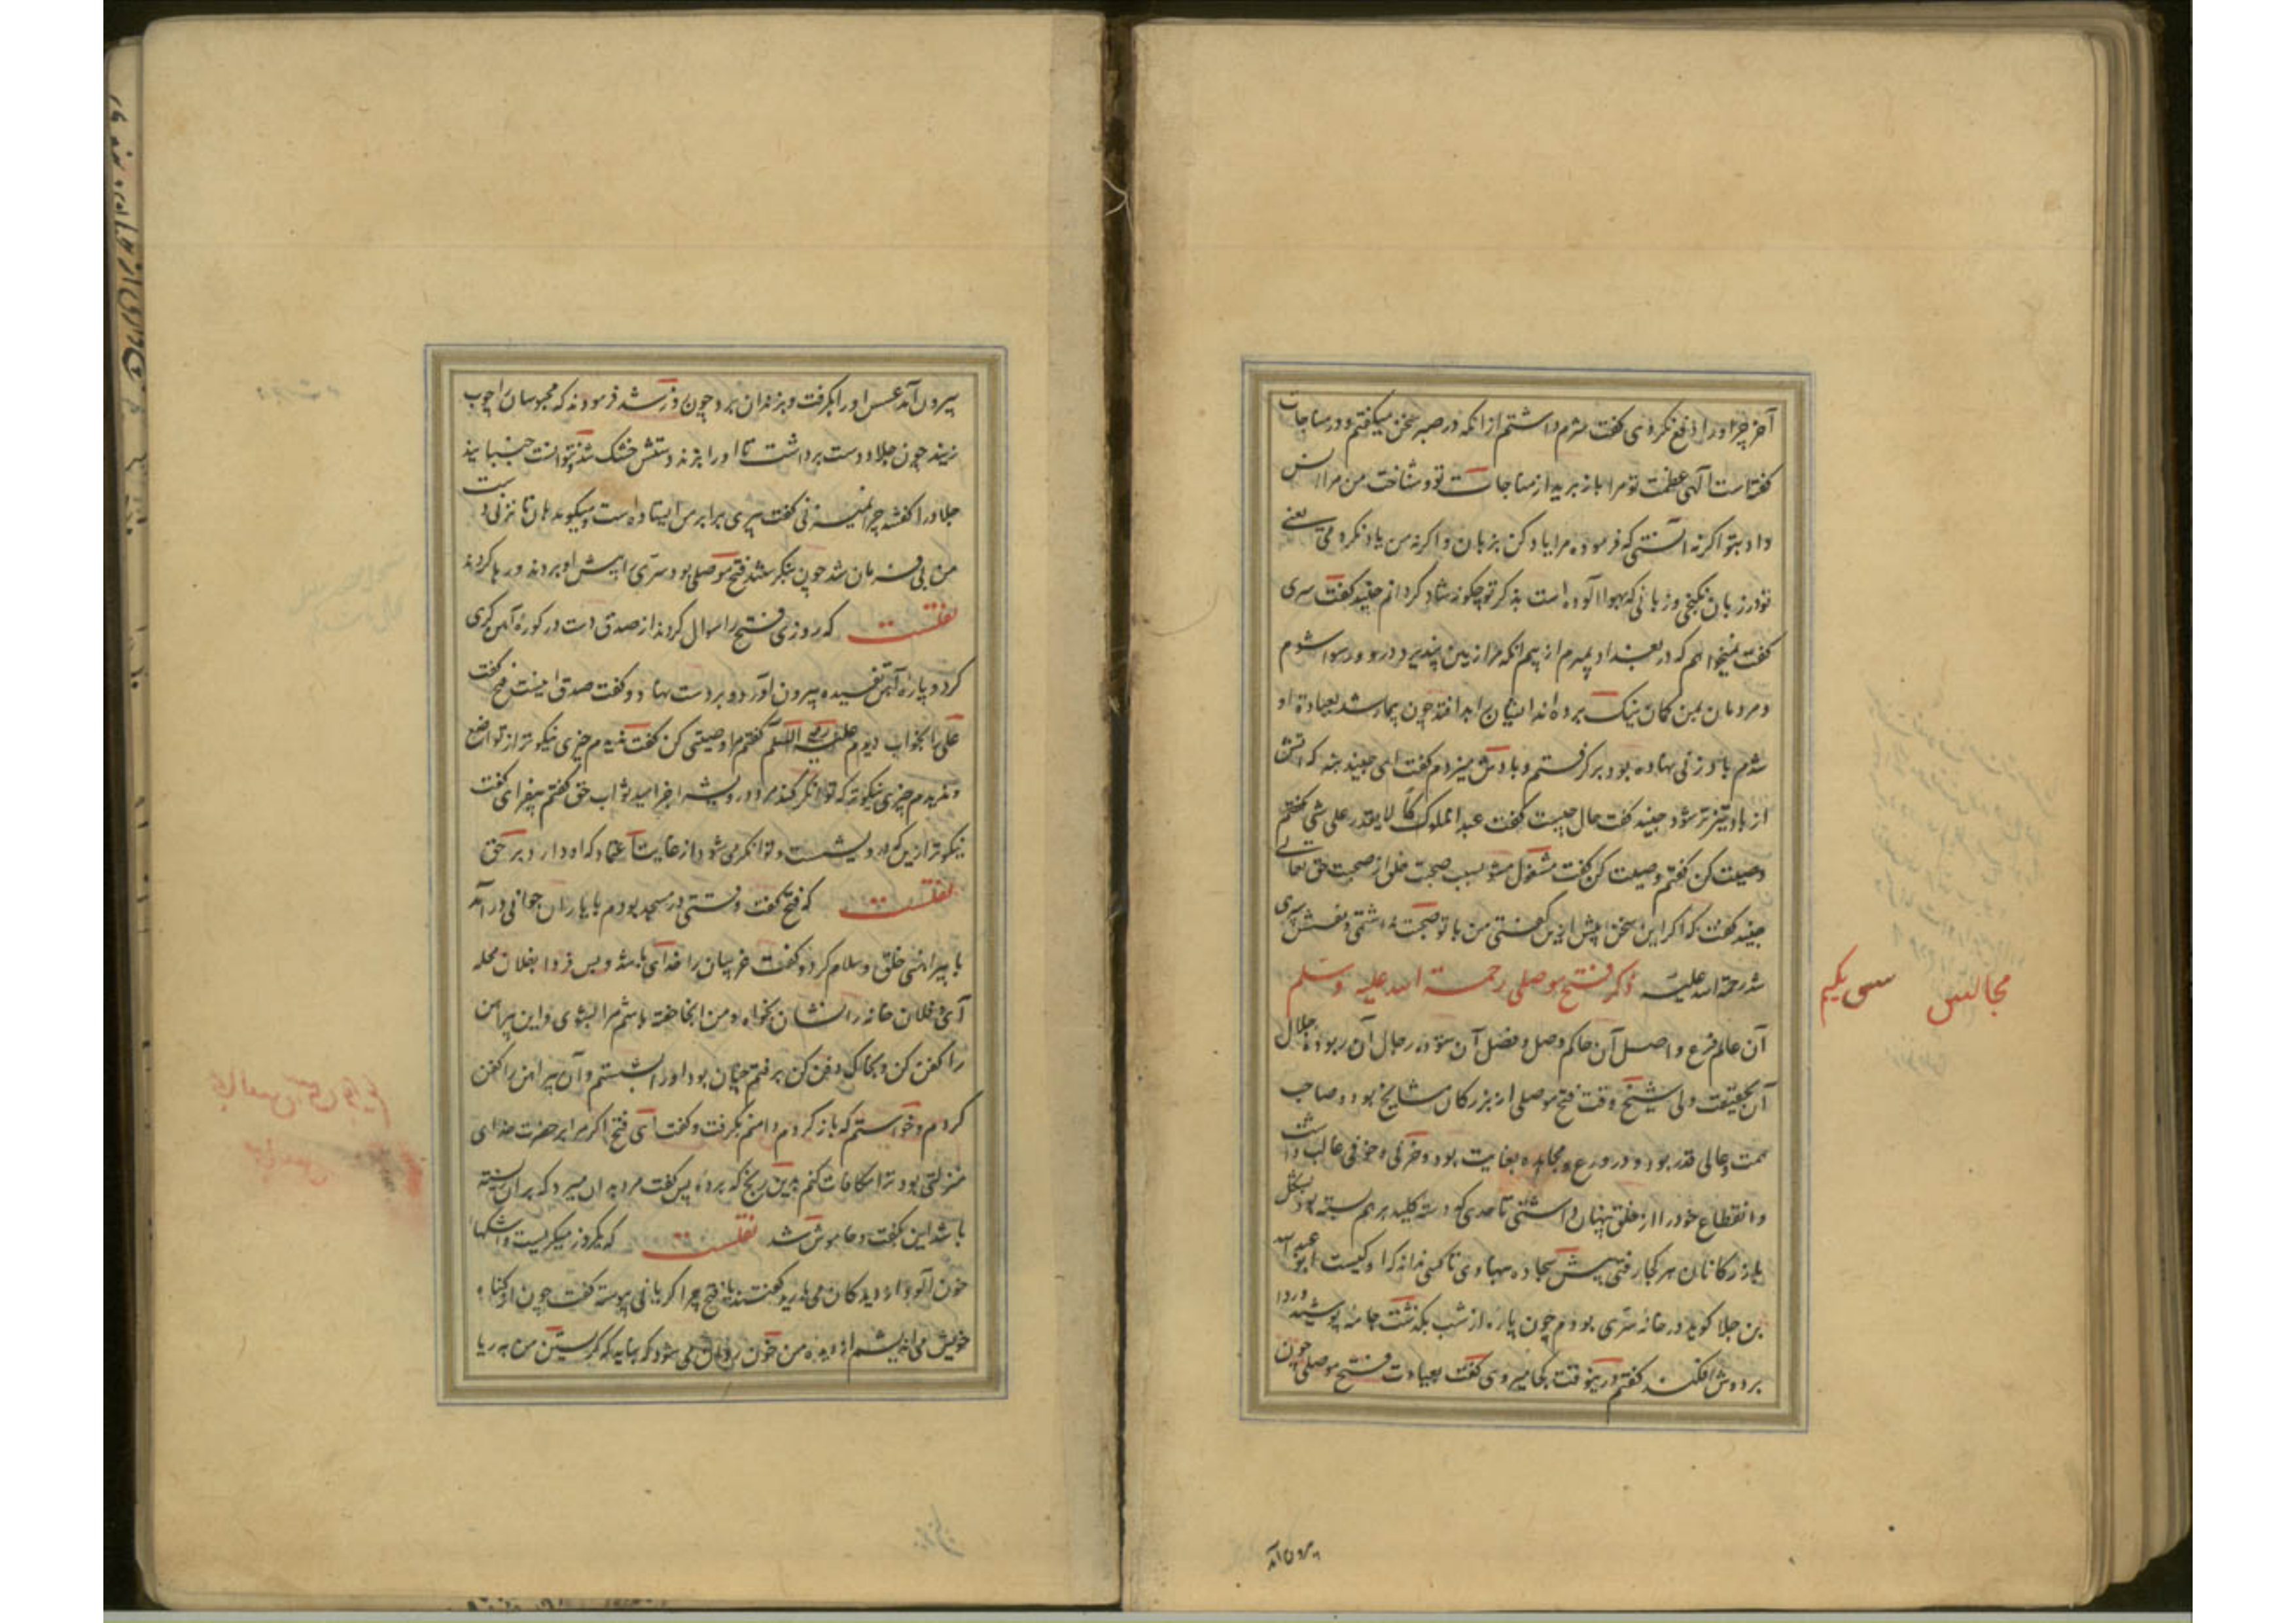 آخر چرا او را دفع نکردی گفت شرم داشتم از آنکه در صبر سخن میگفتم و در مناجات
گفته است الهی عظمت تو مرا باز برید از مناجات تو و شناخت من مرا انس
داد بتو اگر نه آنستی که فرموده مرا یاد کن بزبان و اگر نه من یاد نکردمی یعنی
تو در زبان نگنجی و زبانی که بهوا آلوده است بذکر تو چگونه شاد گردانم جنید گفت سری
گفت نمیخواهم که در بغداد بمیرم از بیم آنکه مرا زمین نپذیرد و رسوا شوم
و مردمان بمن گمان نیک برده اند ایشان را بد افتد چون بیمار شد بعیادة او
شدم بادزنی نهاده بود بر گرفتم و بادش میزدم گفت ای جنید بنه که آتش
از باد تیز تر شود جنید گفت حال چیست گفت عبدا مملوکا لا یقدر علی شی گفتم
وصیت کن گفتم وصیت کن گفت مشغول مشو بسبب صحبت خلق از صحبت حق تعالی
جنید گفت که اگر این سخن پیش ازین گفتی من با تو صحبت نداشتمی و نفس سری
شد رحمة الله علیه ذکر فتح موصلی رحمة الله علیه وسلم
مجالس سی یکم
آن عالم فرع و اصل آن حاکم وصل و فضل آن ستوده رجال آن ربوده جلال
آن بحقیقت ولی شیخ وقت فتح موصلی از بزرگان مشایخ بود و صاحب
همت و عالی قدر بود و در ورع و مجاهده بغایت بود و حزنی و خوفی غالب داشت
و انقطاع خود را از خلق پنهان داشتی تا حدی که دسته کلید بر هم بسته بود بشکل
بازرگانان هر کجا رفتی پیش سجاده نهادی تا کسی نداند که او کیست ابو عبدالله
بن جلا گوید در خانه سری بودم چون پاره از شب بگذشت جامه پوشید و ردا
بر دوش افکند گفتم درینوقت کجا میروی گفت بعیادت فتح موصلی چون
بیرون آمد
بیرون آمد عسس او را بگرفت و بزندان برد چون روز شد فرمودند که محبوسان را چوب
زنید چون جلاد دست برداشت تا او را بزند دستش خشک شد نتوانست جنبانید
جلاد را گفتند چرا نمیزنی گفت پیری برابر من ایستاده است و میگوید هان تا نزنی دست
من بی فرمان شد چون بنگرستند فتح موصلی بود سری را پیش او بردند و رها کردند
نقلست که روزی فتح را سوال کردند از صدق دست در کوره آهن گری
کرد و پاره آهن تفسیده بیرون آورد و بر دست نهاد و گفت صدق اینست فتح گفت
علی را بخواب دیدم علیه السلم گفتم مرا وصیتی کن گفت ندیدم چیزی نیکوتر از تواضع
و ندیدم چیزی نیکوتر که توانگر کند مر درویش را بر امید ثواب حق گفتم بیفزای گفت
نیکوتر ازین کبر درویشست بر توانگر می شود از غایت اعتماد که او دارد بر حق
نقلست که فتح گفت وقتی در مسجد بودم با یاران جوانی در آمد
با پیراهنی خلق و سلام کرد و گفت غریبان را خدای باشد و بس فردا بفلان محله
آی و فلان خانه را نشان بخواه و من آنجا خفته باشم مرا بشوی و این پیراهن
را کفن کن و بخاک دفن کن برفتم چنان بود او را بشستم و آن پیراهن را کفن
کردم و خواستم که باز گردم دامنم بگرفت و گفت ای فتح اگر مرا بر حضرت خدای
منزلتی بود ترا مکافات کنم بدین رنج که بردی پس گفت مرد بر آن میرد که بر آن زیسته
باشد این بگفت و خاموش شد نقلست که یکروز میگریست و اشکها
خون آلود از دیدگان می بارید گفتند یا فتح چرا گریانی پیوسته گفت چون از گناه
خویش می اندیشم از دیده من خون روان می شود که نباید که گریستن من به ریا